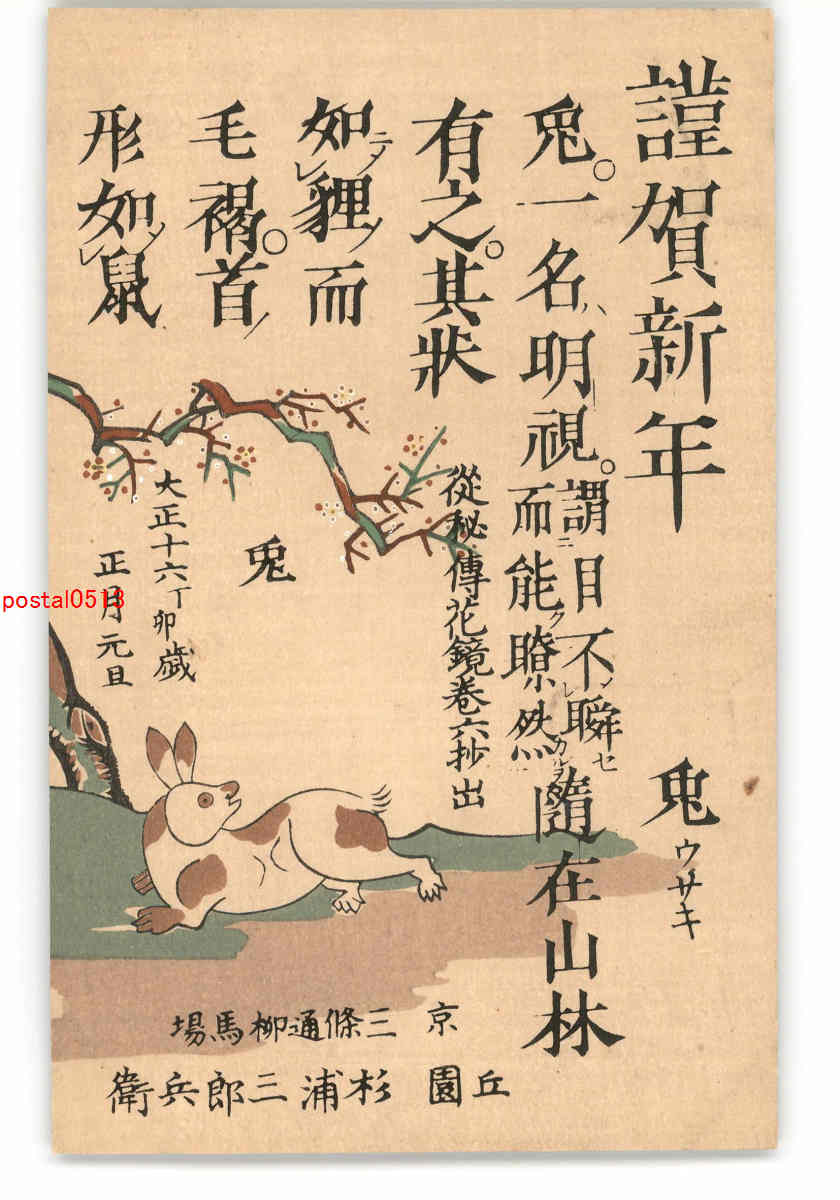 謹賀新年
兎 ウサキ
兎。一名ハ明視。謂目不レ瞬セ
而ニ能ク瞭然 隨在山林
有之。其状
如レ貍ノ而
毛褐。首ノ
形如レ鼠ノ
從秘傳花鏡巻六抄出
兎
大正十六丁卯歳
正月元旦
京三條通柳馬場
丘園 杉浦三郎兵衛
postal0513